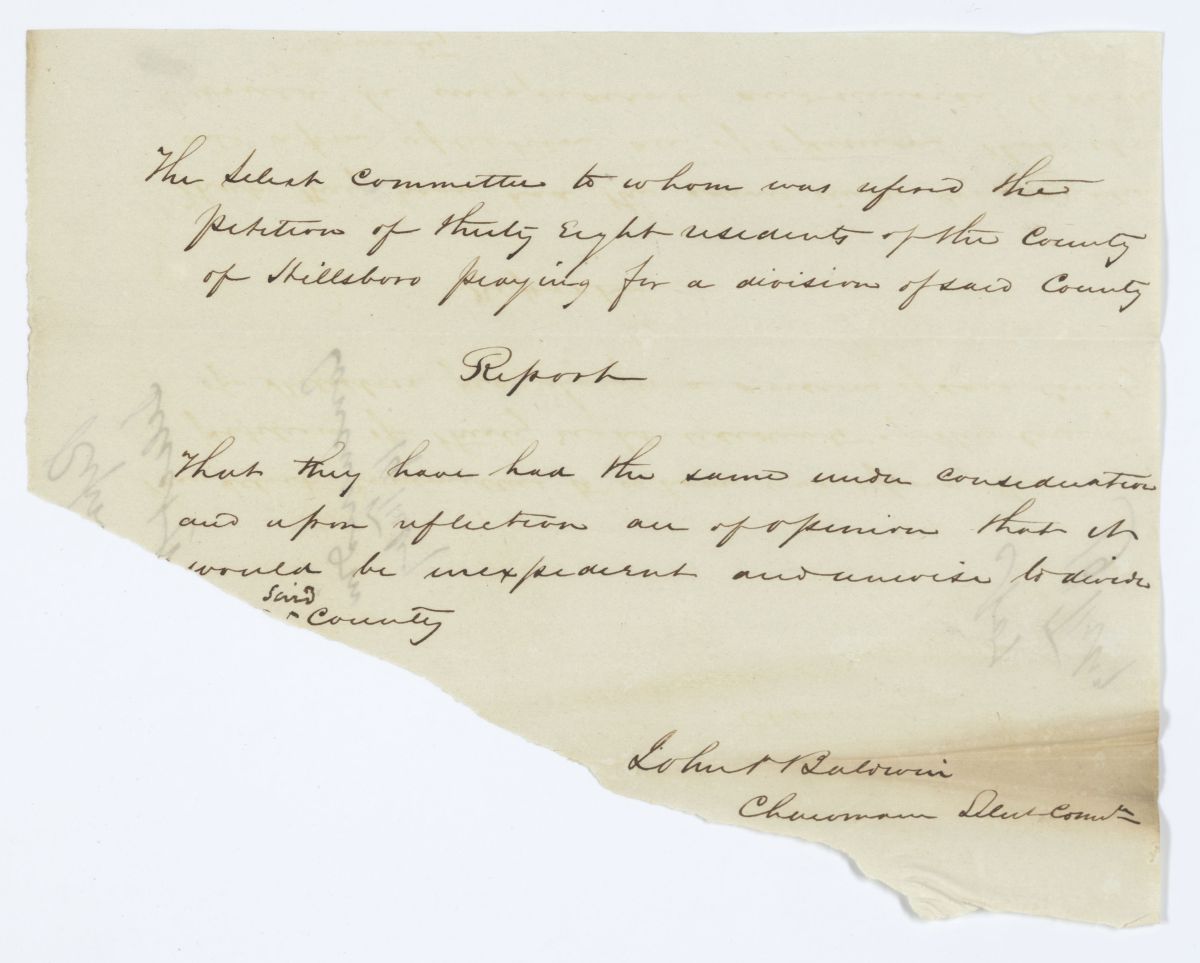 The Select Committee to whom was refered the
petition of thirty Eight residents of the County
of Hillsboro praying for a division of said County
Report
That they have had the same under consideration
and upon reflection are of opinion that it
would be inexpedient and unwise to divide
said
County
John P Baldwin
Chairman Select Comtee